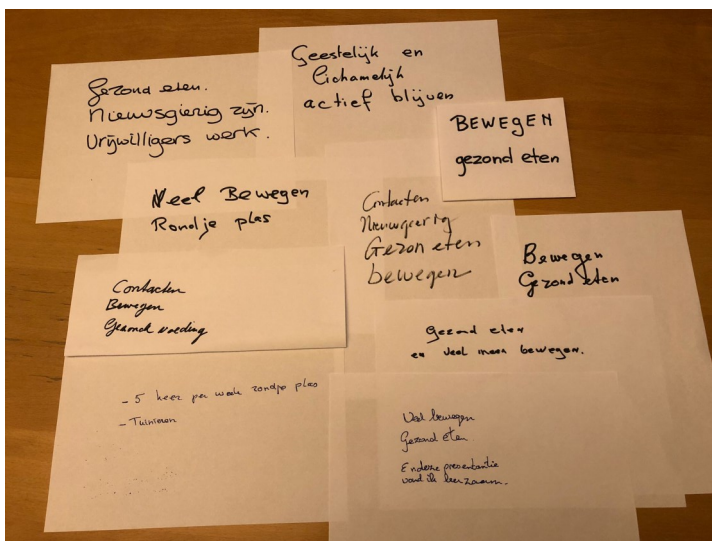 Gezond eten.
Nieuwsgierig zijn.
Vrijwilligers werk.
Geestelijk en
lichamelijk
actief blijven
BEWEGEN
gezond eten
Veel Bewegen
Rondje plas
Contacten
Nieuwgierig
Gezon eten
bewegen
Bewegen
Gezond eten
Contacten
Bewegen
Gezonde voeding
Gezond eten
en veel meer bewegen.
- 5 keer per week rondje plas
- Tuinieren
Veel bewegen
Gezond eten
En deze presentantie
vond ik leerzaam.